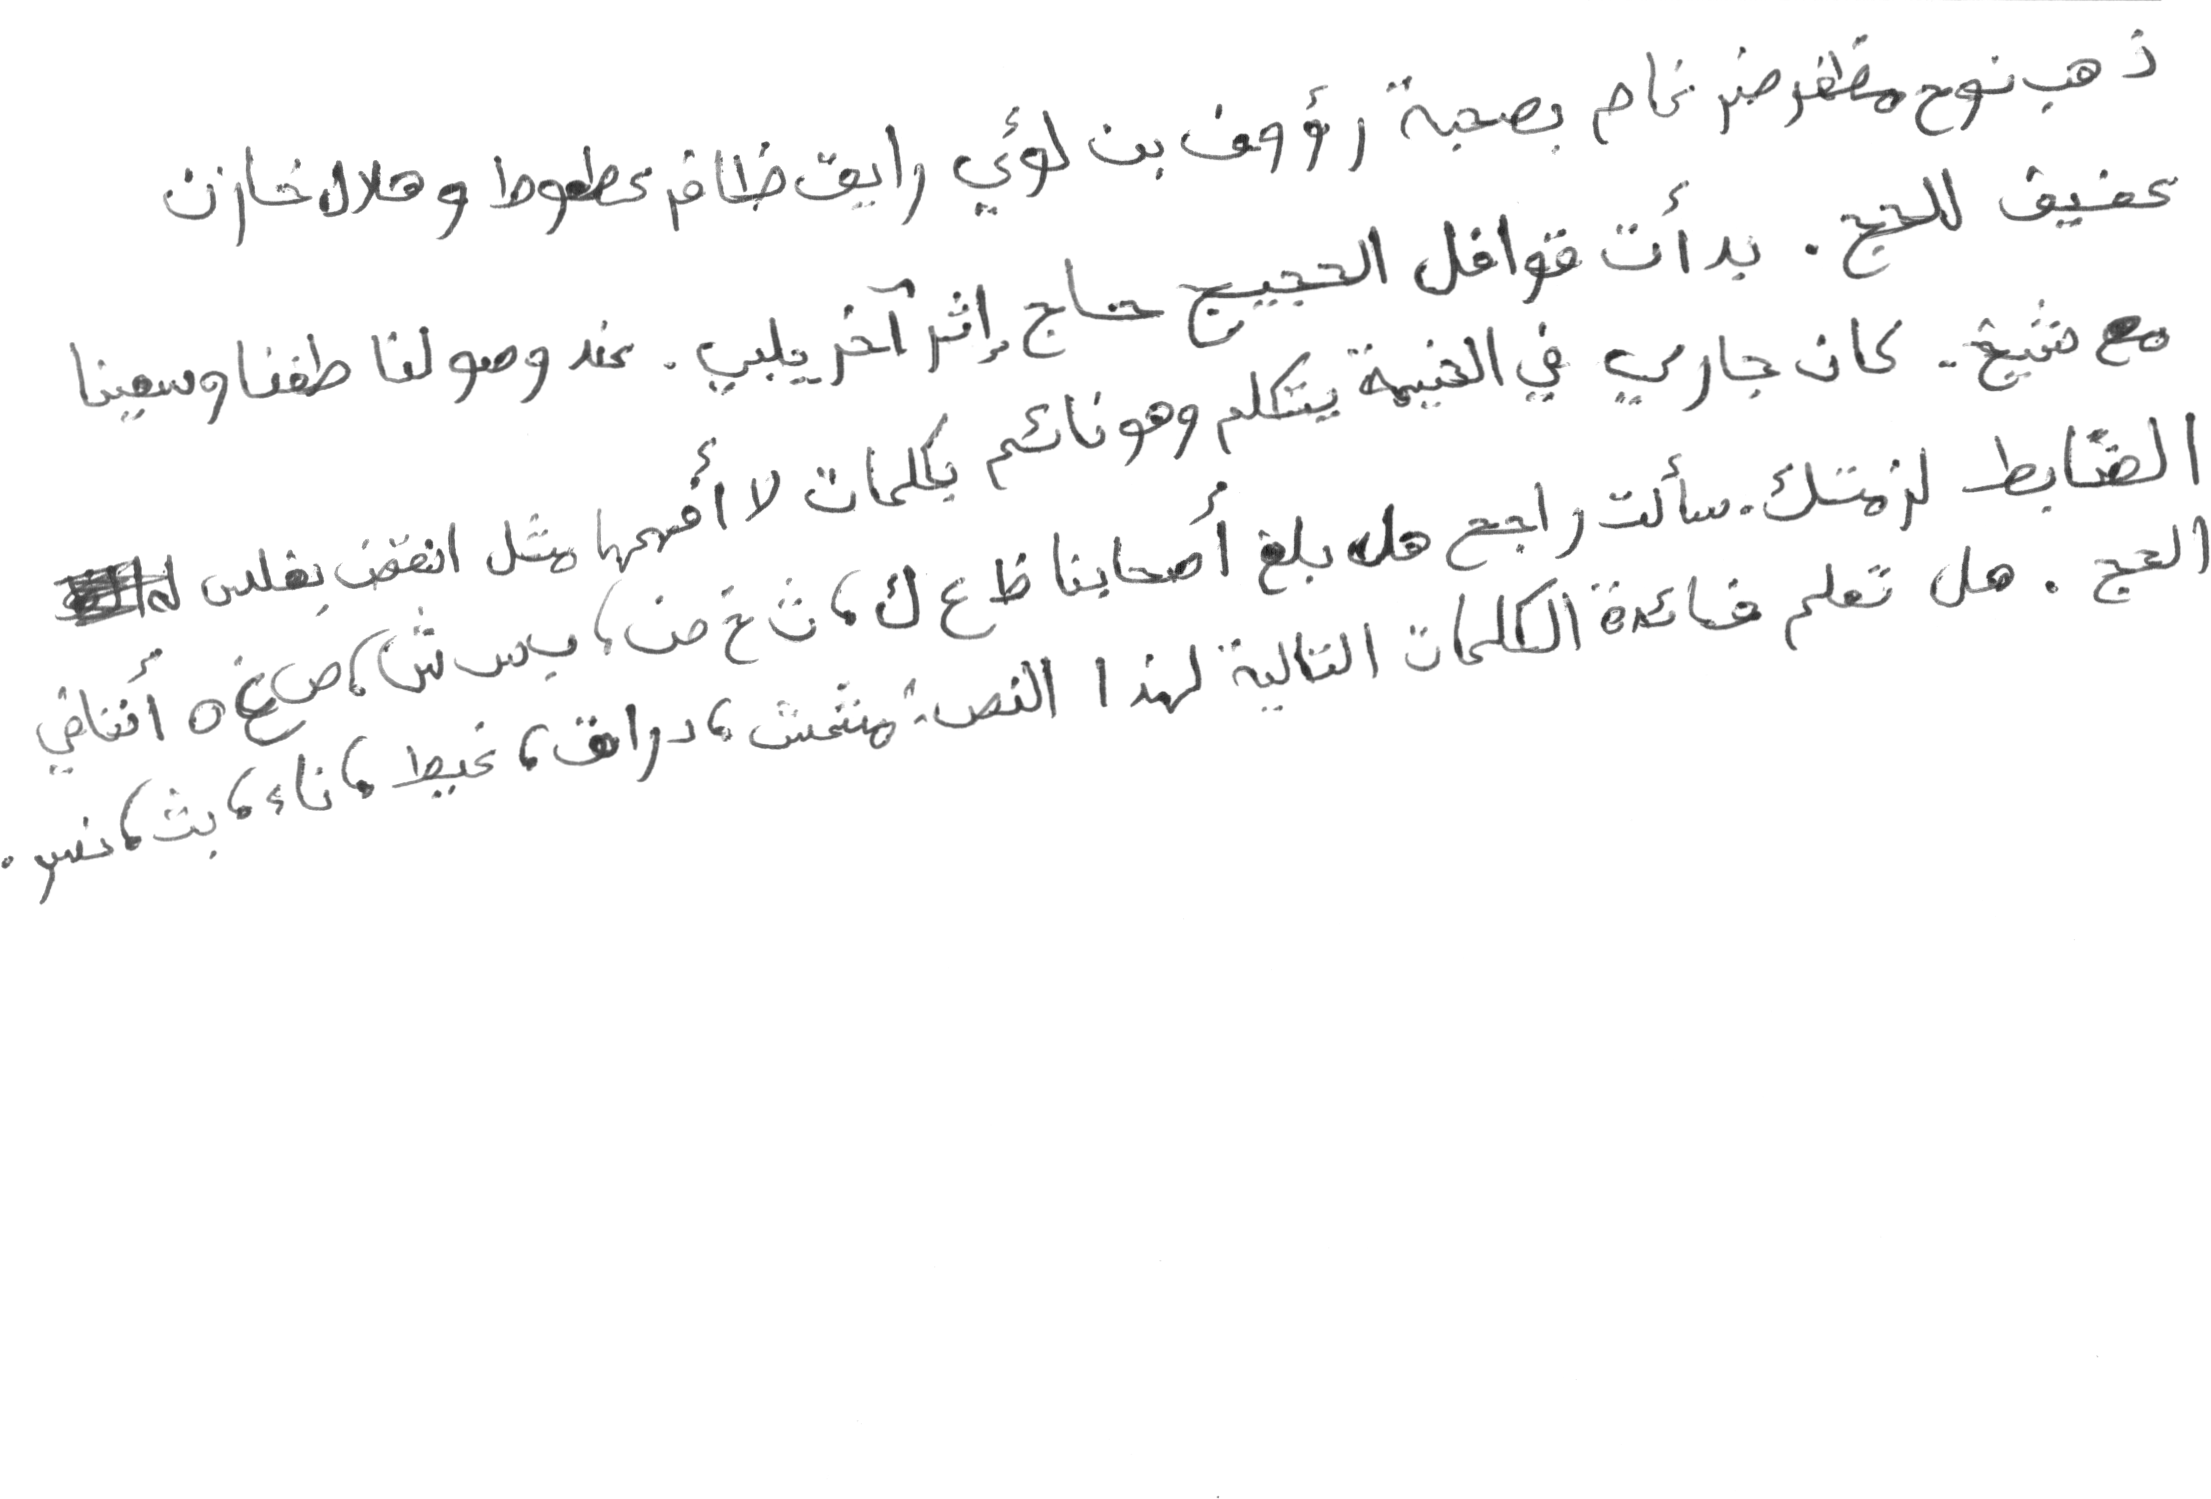 ذهب نوح مظفر ضرغام بصحبة رؤوف بن لؤي رايق ظافر عطعوط وهلال خازن
عفيف للحج. بدأت قوافل الحجيج حاج إثر آخر يلبي. عند وصولنا طفنا وسعينا
مع شيخ. كان جاري في الخيمة يتكلم وهو نائم بكلمات لا أفهمها مثل انغض بغلس
الضابط لزمتك. سألت راجح هل بلغ أصحابنا ظ ع ك، ث خ ض، ب س ش، ص غ ه أقاضي
الحج. هل تعلم فائدة الكلمات التالية لهذا النص: مشمش، دراق، غيط، ناء، بث، نسر.